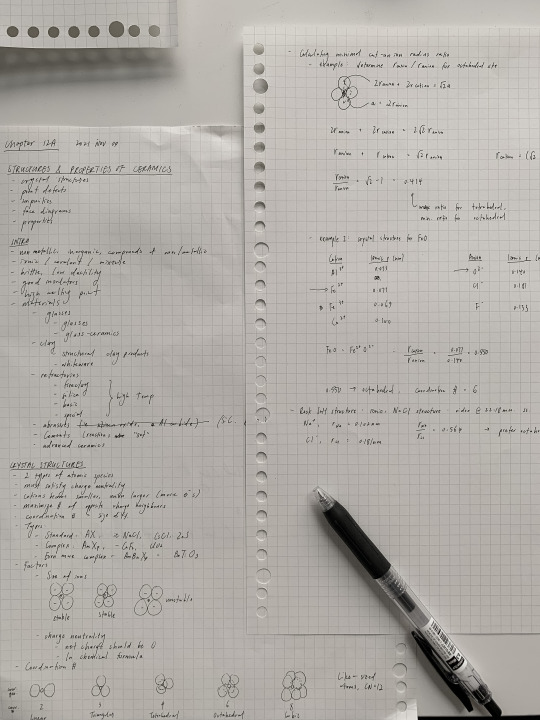 Chapter 12A 2021 Nov 09
STRUCTURES & PROPERTIES OF CERAMICS
- crystal structures
- point defects
- impurities
- phase diagrams
- properties
INTRO
- non metallic, inorganic, compounds of non/metallic
- ionic / covalent / mixture
- brittle, low ductility
- good insulators
- high melting point
- materials
- glasses
- glasses
- glass-ceramics
- clay
- structural clay products
- whiteware
- refractories
- fireclay
- silica
- basic
- special
high temp
- abrasives
- cements
- advanced ceramics
CRYSTAL STRUCTURES
- 2 types of atomic species
- must satisfy charge neutrality
- cations smaller, anion larger (more e⁻s)
- maximize # of opposite charge neighbours
- coordination #
- Types
- Standard - AX, NaCl, CsCl, ZnS
- Complex - AmXp - CaF₂, UO₂
- Even more complex - AmBnXp - BaTiO₃
- Factors
- Size of ions
stable
stable
unstable
- charge neutrality
- net charge should be 0
- in chemical formula
- Coordination #
2
3
4
6
8
Linear
Triangular
Tetrahedral
Octahedral
Cubic
CN=12
- Calculating minimal cat-an ion radius ratio
- example: determine rcation / ranion for octahedral site
2ranion + 2rcation = √2a
a = 2ranion
2ranion + 2rcation = 2√2 ranion
ranion + rcation = √2 ranion
rcation = (√2
rcation/ranion = √2 - 1 = 0.414
ratio for tetrahedral,
min. ratio for octahedral
- example 1: crystal structure for FeO
Cation Ionic r (nm) Anion Ionic r (nm)
Al³⁺ 0.053 → O²⁻ 0.140
→ Fe²⁺ 0.077 Cl⁻ 0.181
Fe³⁺ 0.069 F⁻ 0.133
Ca²⁺ 0.100
FeO - Fe²⁺ O²⁻ rcation/ranion = 0.077/0.140 = 0.550
0.550 → octahedral, coordination # = 6
- Rock Salt structure: ionic, NaCl structure
Na⁺, rNa = 0.102nm rNa/rCl = 0.564 → prefer octahed
Cl⁻, rCl = 0.181nm